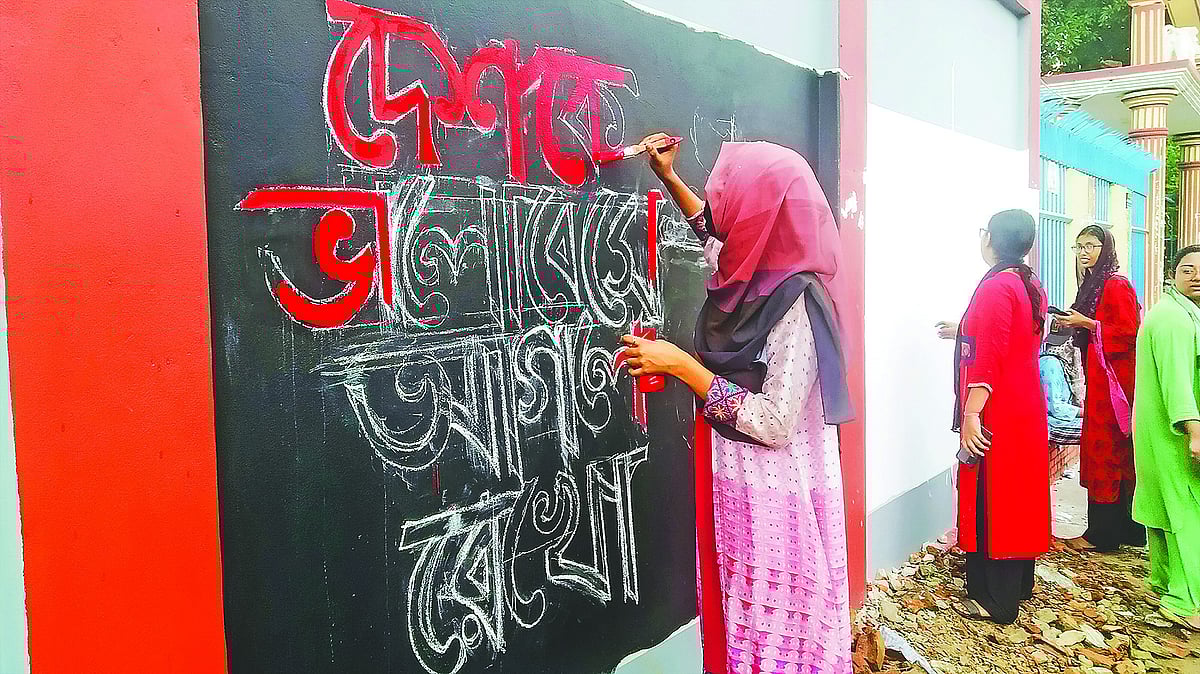 দেশকে
ভালোবেসে
আগলে
রেখো